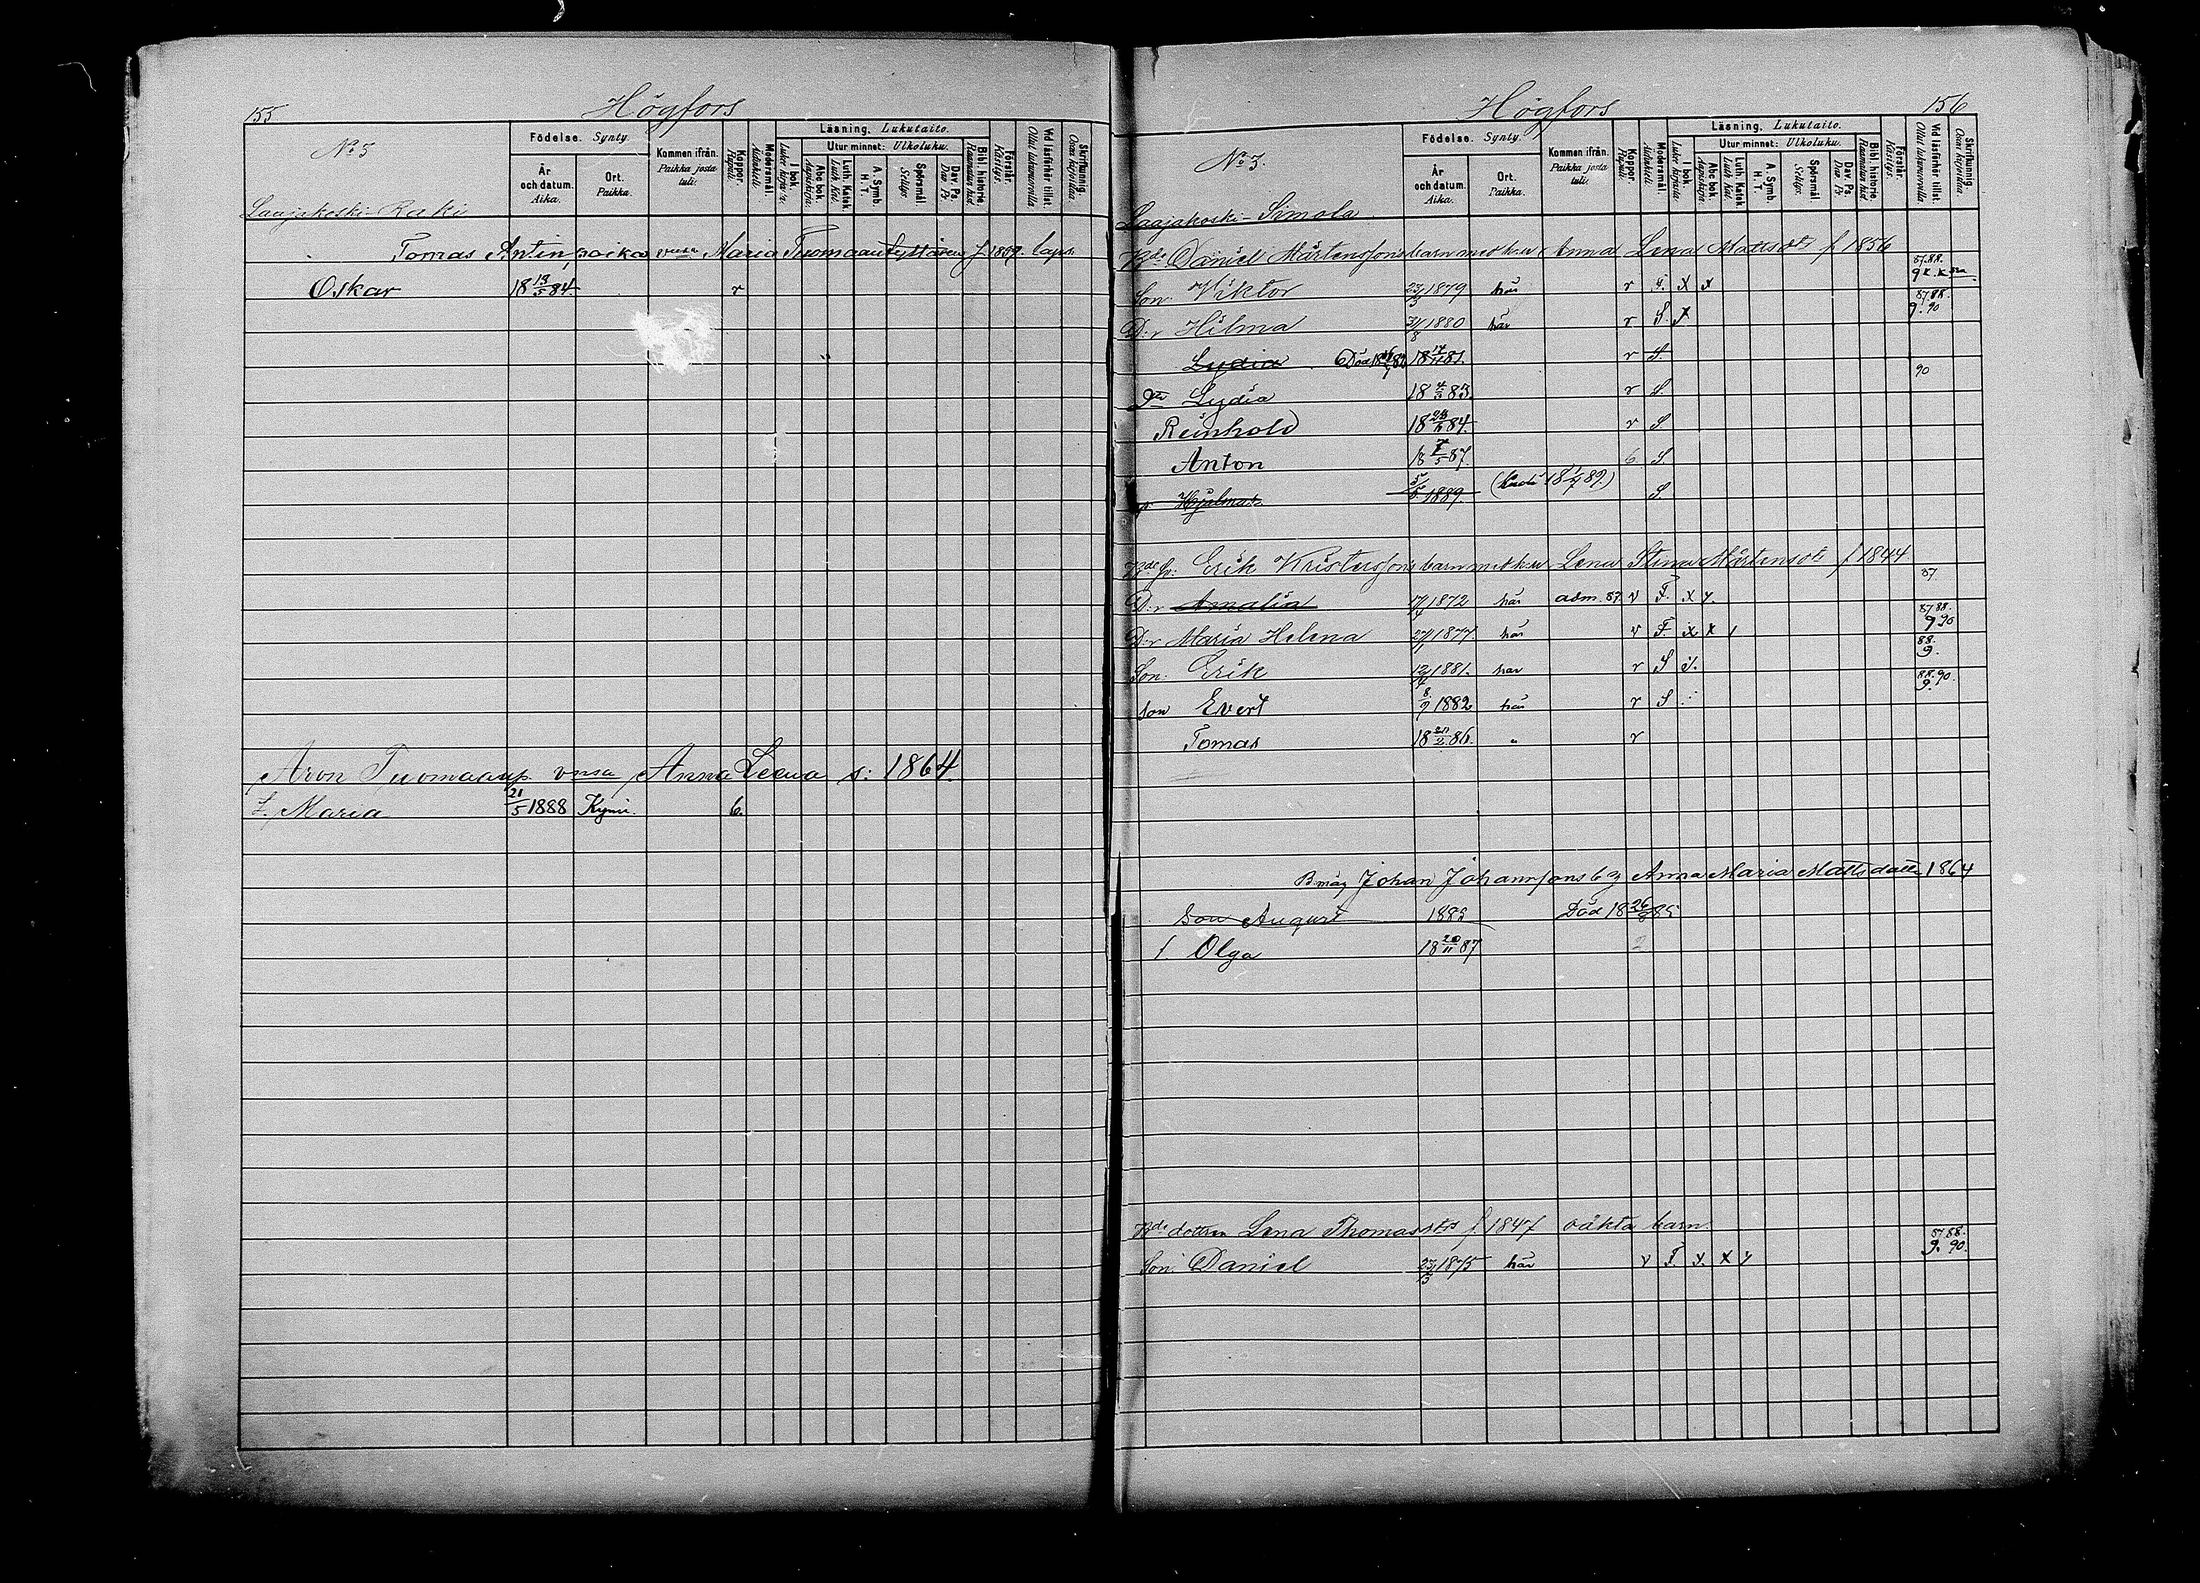 155
Högfors
No 5
Födelse. Synty.
År och datum. Aika.
Ort. Paikka.
Kommen ifrån. Paikka josta tuli.
Koppor. Rupuli.
Modersmål. Äidinkieli.
Läsning, Lukutaito.
I bok. Lukee kirjasta.
Utur minnet: Ulkoluku.
Abc bok. Aapiskirja
Luth. Katek. Luth. Kat.
A. Symb. H. T.
Spörsmål. Selitys.
Dav. Ps. Dav. Ps.
Bibl. historie. Raamatun hist.
Förstår. Käsitys.
Vid läsförhör tillst. Ollut lukuneuvoilla
Skriftkunnig. Osaa kirjoittaa
Laajakoski Raki
Tomas Antin poika vmsa Maria Tuomaan f. 1859. laps.
Oskar 18 19/5 84. r
Aron Tuomaanp. vmsa Anna Leena s: 1864
t. Maria 21/5 1888 Kymi. 6.
Högfors
156
No 3.
Födelse. Synty.
År och datum. Aika.
Ort. Paikka.
Kommen ifrån. Paikka josta tuli.
Koppor. Rupuli.
Modersmål. Äidinkieli.
Läsning, Lukutaito.
I bok. Lukee kirjasta.
Utur minnet: Ulkoluku.
Abc bok. Aapiskirja
Luth. Katek. Luth. Kat.
A. Symb. H. T.
Spörsmål. Selitys.
Dav. Ps. Dav. Ps.
Bibl. historie. Raamatun hist.
Förstår. Käsitys.
Vid läsförhör tillst. Ollut lukuneuvoilla
Skriftkunnig. Osaa kirjoittaa
Laajakoski-Simola
Bde Daniel Mårtenssons barn med h.u Anna Lena Mattsdt f 1856
Son. Viktor 1879 här r x x 87.88.
D.r Hilma 1880 här r S. x 87.88. 9.90
Lydia Död 1881. r S
Lydia 1883. r S. 90
Reinhold 1884. r S
Anton 18 7/5 87. 6. S
Hjalmar 5/5 1889. S.
Bde Sv: Erik Kristerssons barn med h.u Lena Stina Mårtensdt f 1844
D.r Amalia 1872 här adm. 87. v F. x 87
D.r Maria Helena 27/1 1877. här v F. x x / 87 88. 9 90
Son. Erik 1881. här r S 88. 9.
Son Evert 8/9 1882 här r S 88.90. 9.
Tomas 1886. " r
Bmåg Johan Johanssons b Anna Maria Mattsdotter 1864
Son August 1883 Död 18 26/8 85
f Olga 18 20/11 87 2
Bde dottren Lena Thomasdt f 1847 oäkta barn
Son. Daniel 1875 här v F x. x y 87 88. 9. 90.